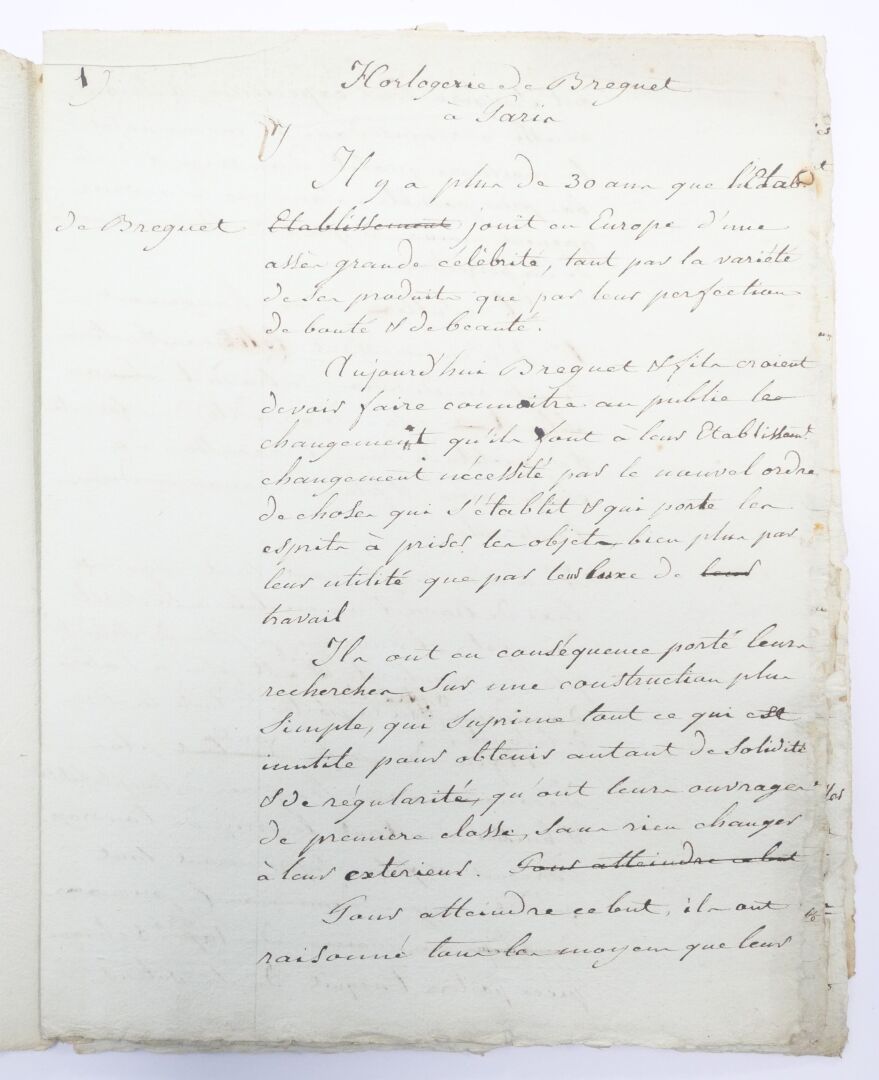 1)
Horlogerie de Breguet
à Paris
Il y a plus de 30 ans que l'Etab
de Breguet
Etablissement jouit en Europe d'une
assès grande célébrité, tant par la variété
de ses produits que par leur perfection
de bonté & de beauté.
Aujourd'hui Breguet & fils croient
devoir faire connoitre au public les
changement qu'ils font à leur Etablissemt.
changement nécessité par le nouvel ordre
de choses qui s'établit & qui porte les
esprits à priser les objets, bien plus par
leur utilité que par leur luxe de leur
travail
Ils ont en conséquence porté leurs
recherches sur une construction plus
simple, qui suprime tout ce qui est
inutile pour obtenir autant de solidité
& de régularité, qu'ont leurs ouvrages
de première classe, sans rien changer
à leur extérieur. Pour atteindre ce but
Pour atteindre ce but, ils ont
raisonné tous les moyens que leur